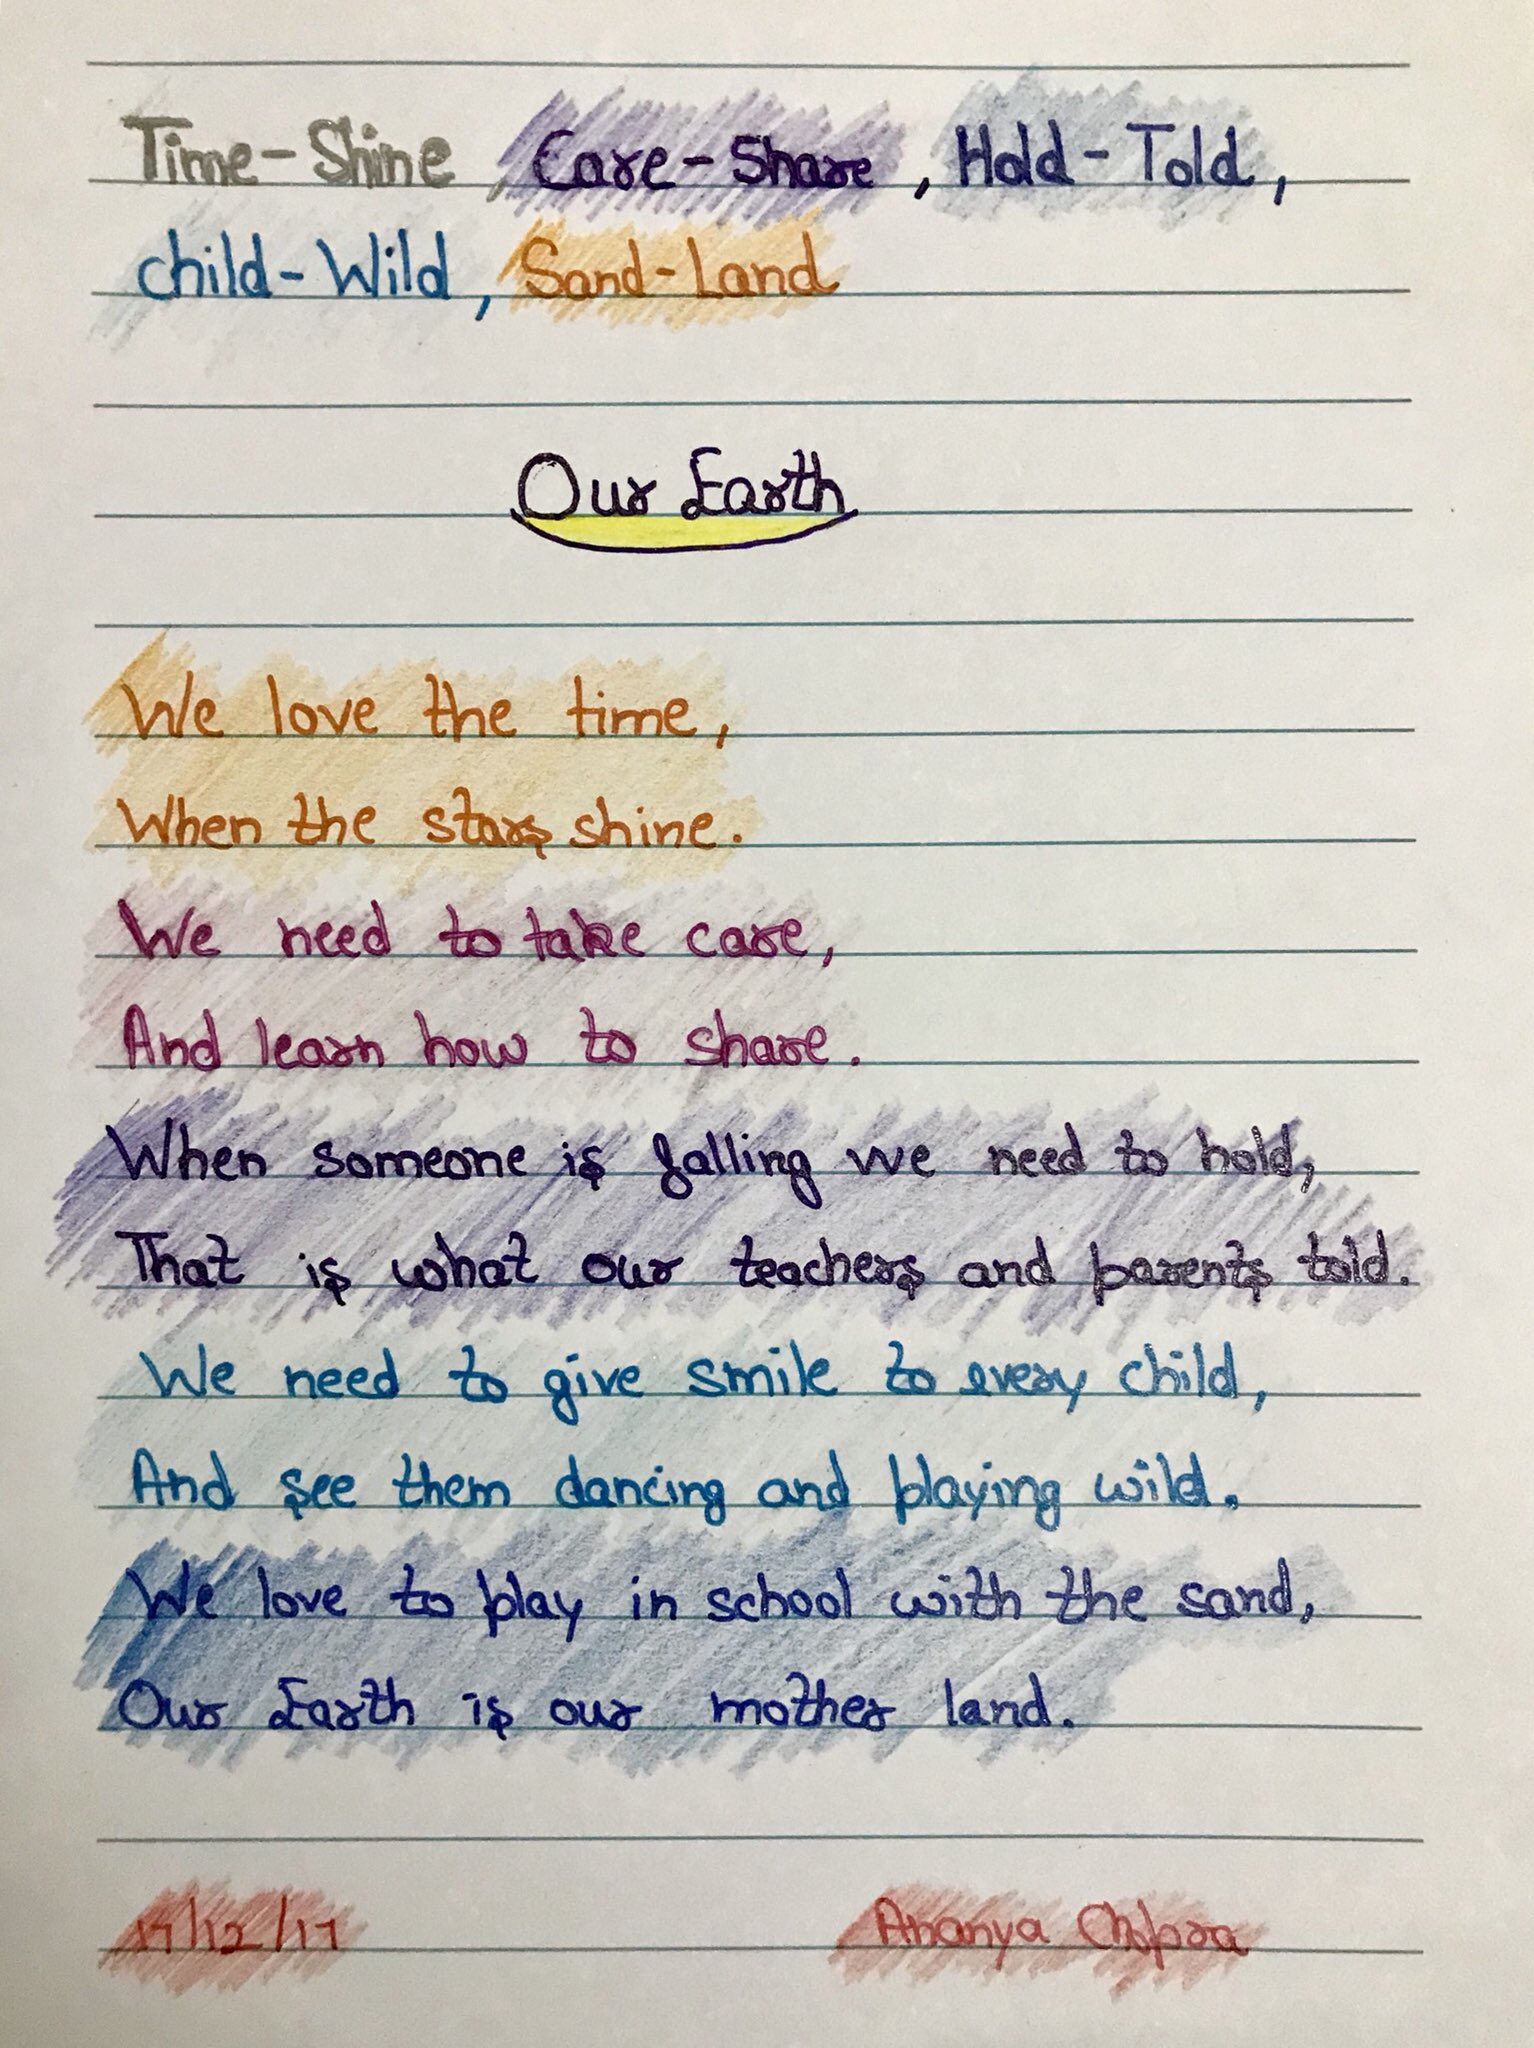 Time-Shine, Care-Share, Hold-Told,
child-Wild, Sand-Land
Our Earth
We love the time,
When the stars shine.
We need to take care,
And learn how to share.
When someone is falling we need to hold,
That is what our teachers and parents told.
We need to give smile to every child,
And see them dancing and playing wild.
We love to play in school with the sand,
Our Earth is our mother land.
17/12/17 Ananya Chopra